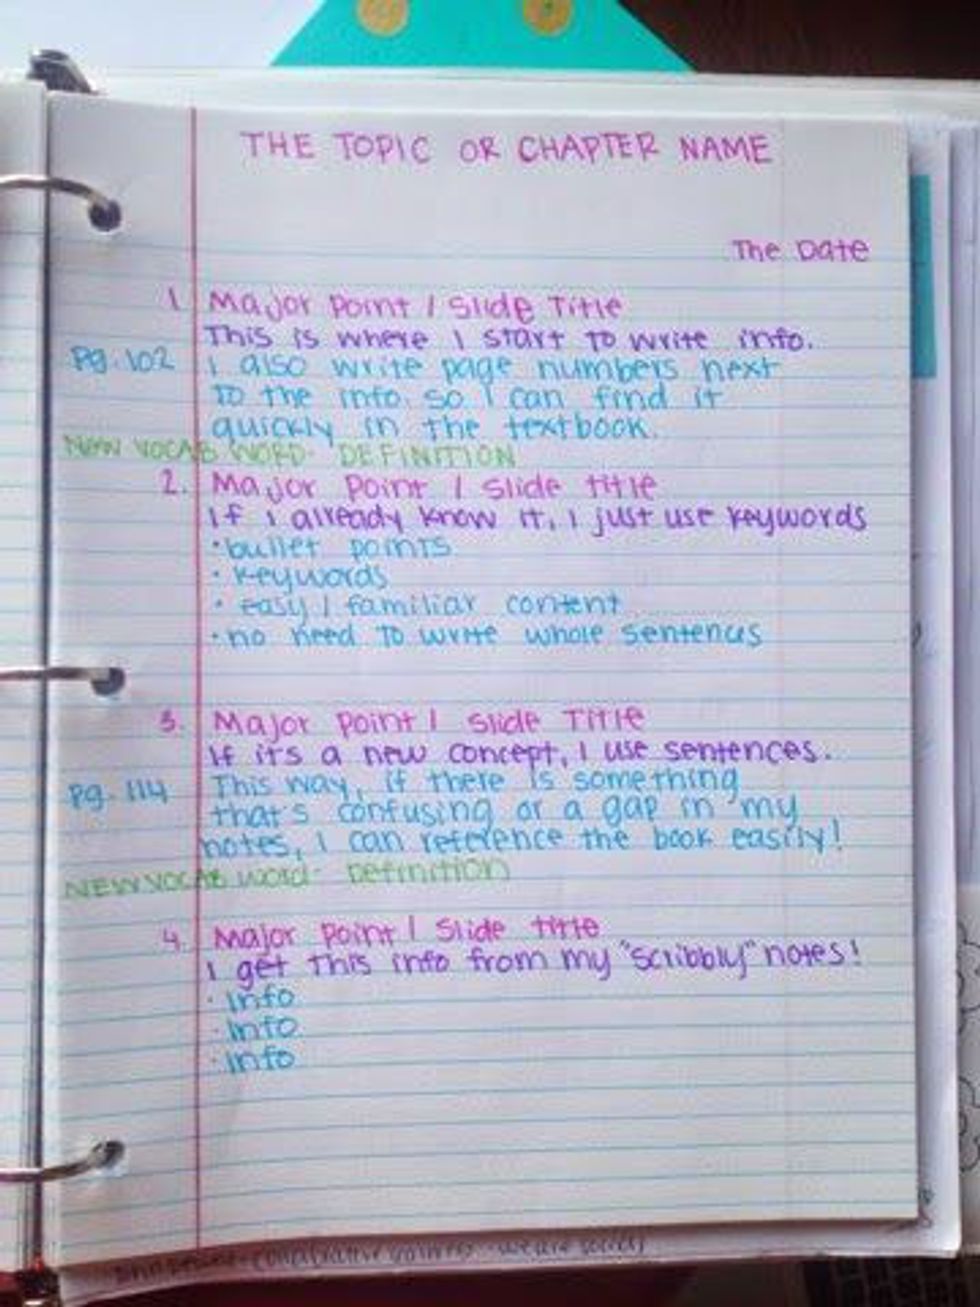 THE TOPIC OR CHAPTER NAME
The Date
1. Major Point / Slide Title
This is where I start to write info.
Pg. 102 I also write page numbers next
to the info so I can find it
quickly in the textbook.
NEW VOCAB WORD- DEFINITION
2. Major Point / Slide title
If I already know it, I just use keywords
• bullet points
• keywords
• easy / familiar content
• no need to write whole sentences
3. Major Point / Slide Title
If it's a new concept, I use sentences.
Pg. 114 This way, if there is something
that's confusing or a gap in my
notes, I can reference the book easily!
NEW VOCAB Word- Definition
4. Major Point / Slide title
I get this info from my "scribbly" notes!
• Info
• Info
• Info